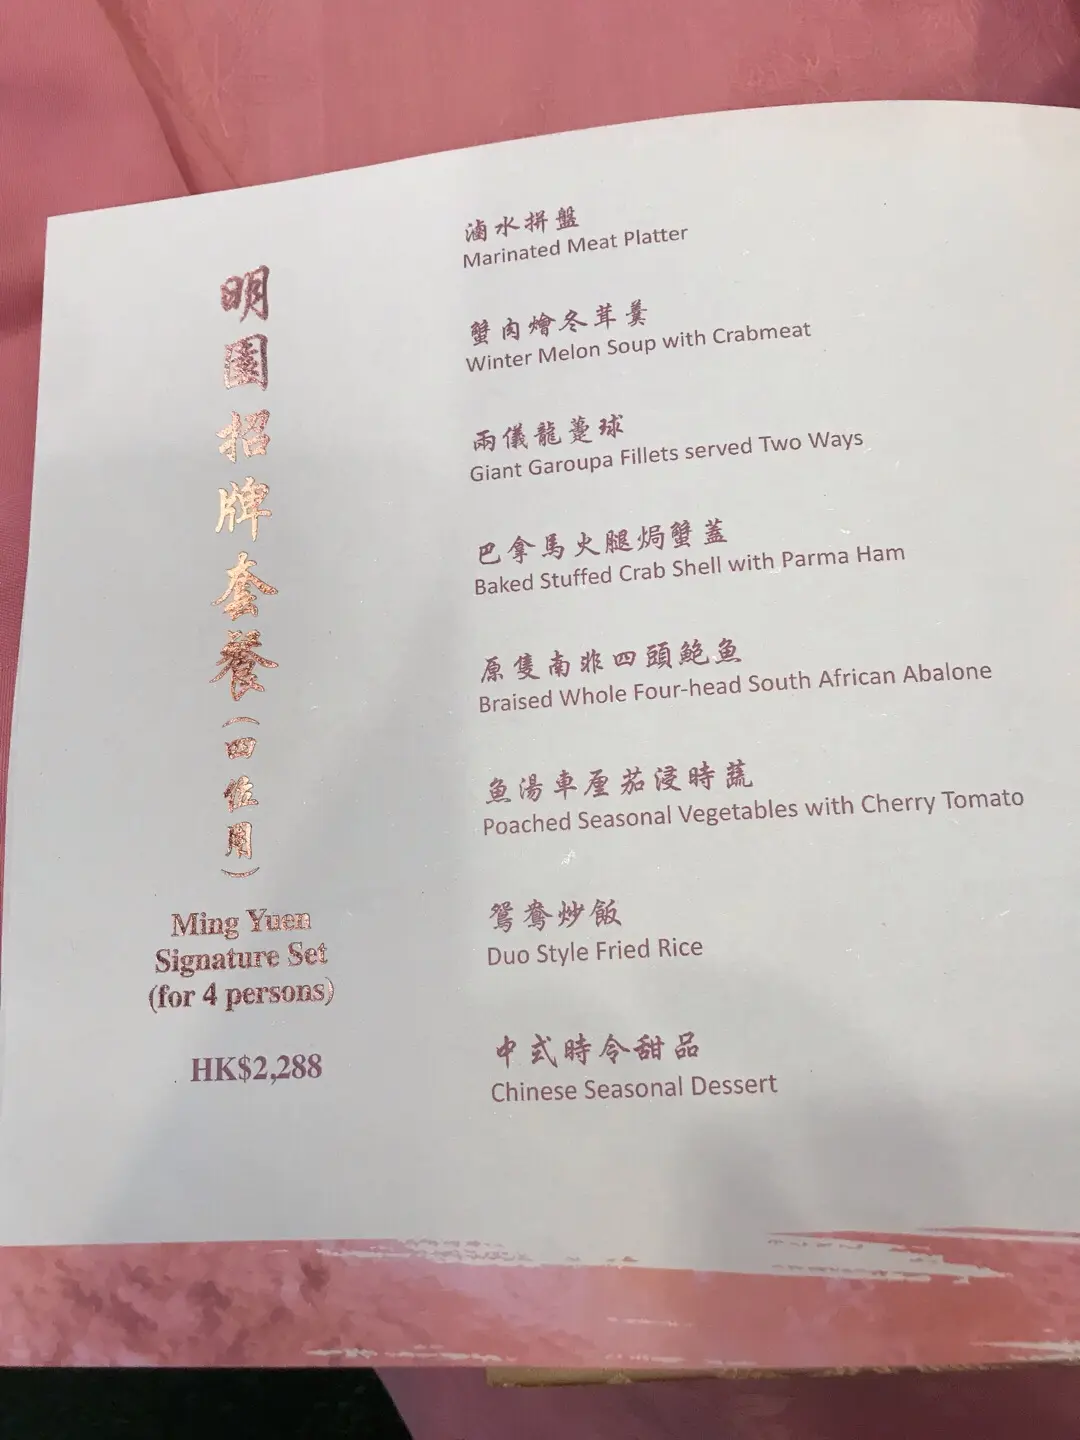 明園招牌套餐(四位用)
Ming Yuen
Signature Set
(for 4 persons)
HK$2,288
滷水拼盤
Marinated Meat Platter
蟹肉燴冬茸羹
Winter Melon Soup with Crabmeat
兩儀龍躉球
Giant Garoupa Fillets served Two Ways
巴拿馬火腿焗蟹蓋
Baked Stuffed Crab Shell with Parma Ham
原隻南非四頭鮑魚
Braised Whole Four-head South African Abalone
魚湯車厘茄浸時蔬
Poached Seasonal Vegetables with Cherry Tomato
鴛鴦炒飯
Duo Style Fried Rice
中式時令甜品
Chinese Seasonal Dessert